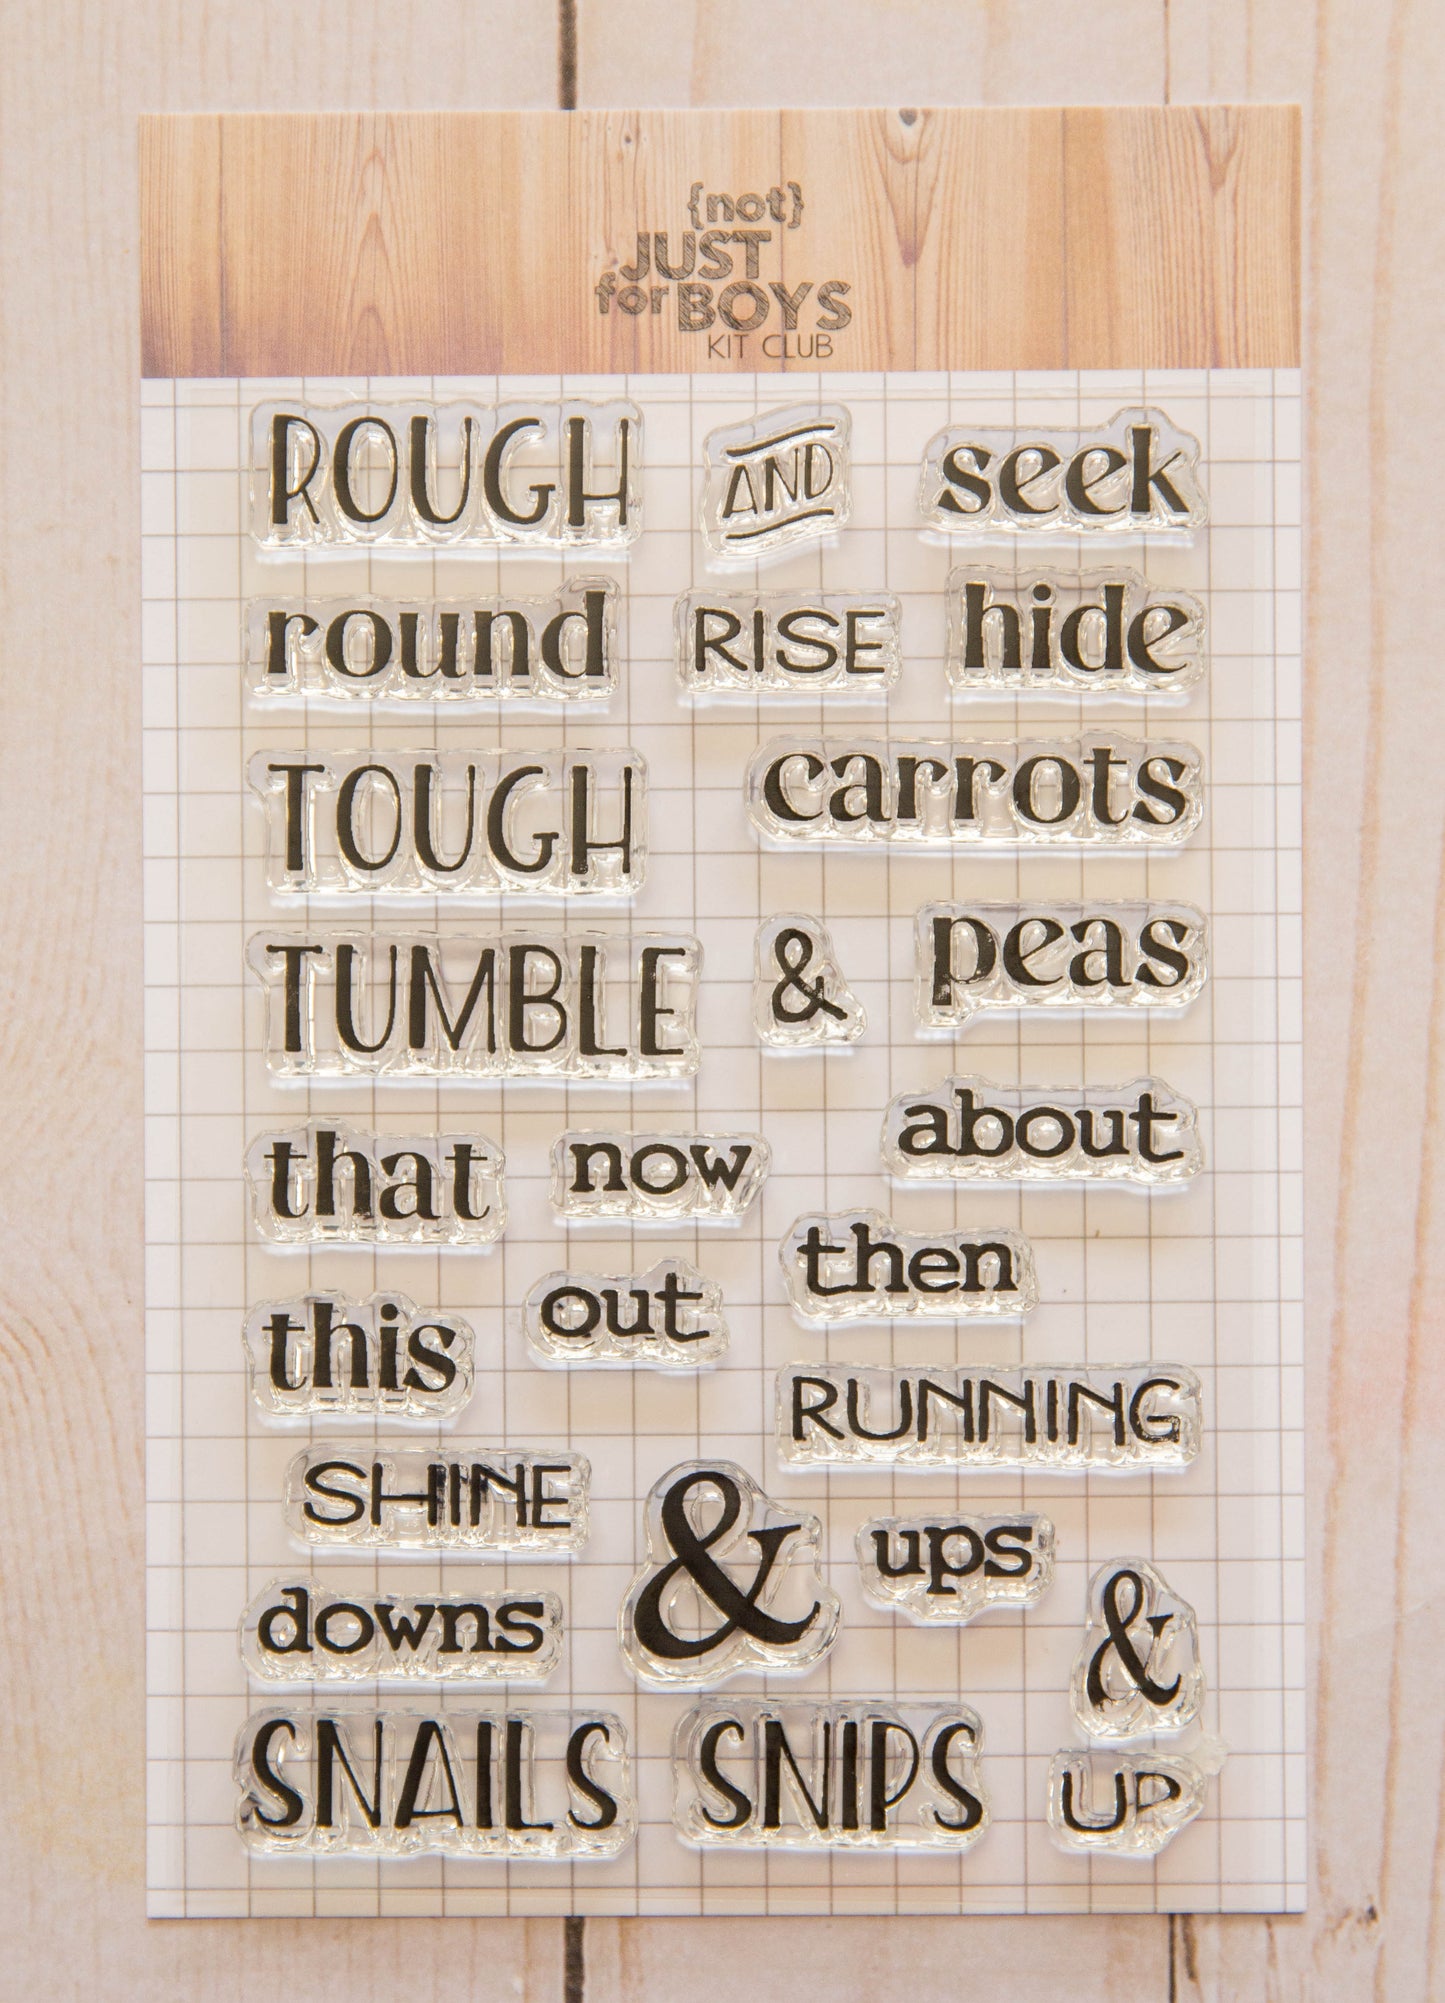 {not}
JUST
for BOYS
KIT CLUB
ROUGH AND seek
round RISE hide
TOUGH carrots
TUMBLE & peas
that now about
then
this out
RUNNING
SHINE & ups
downs &
SNAILS SNIPS UP